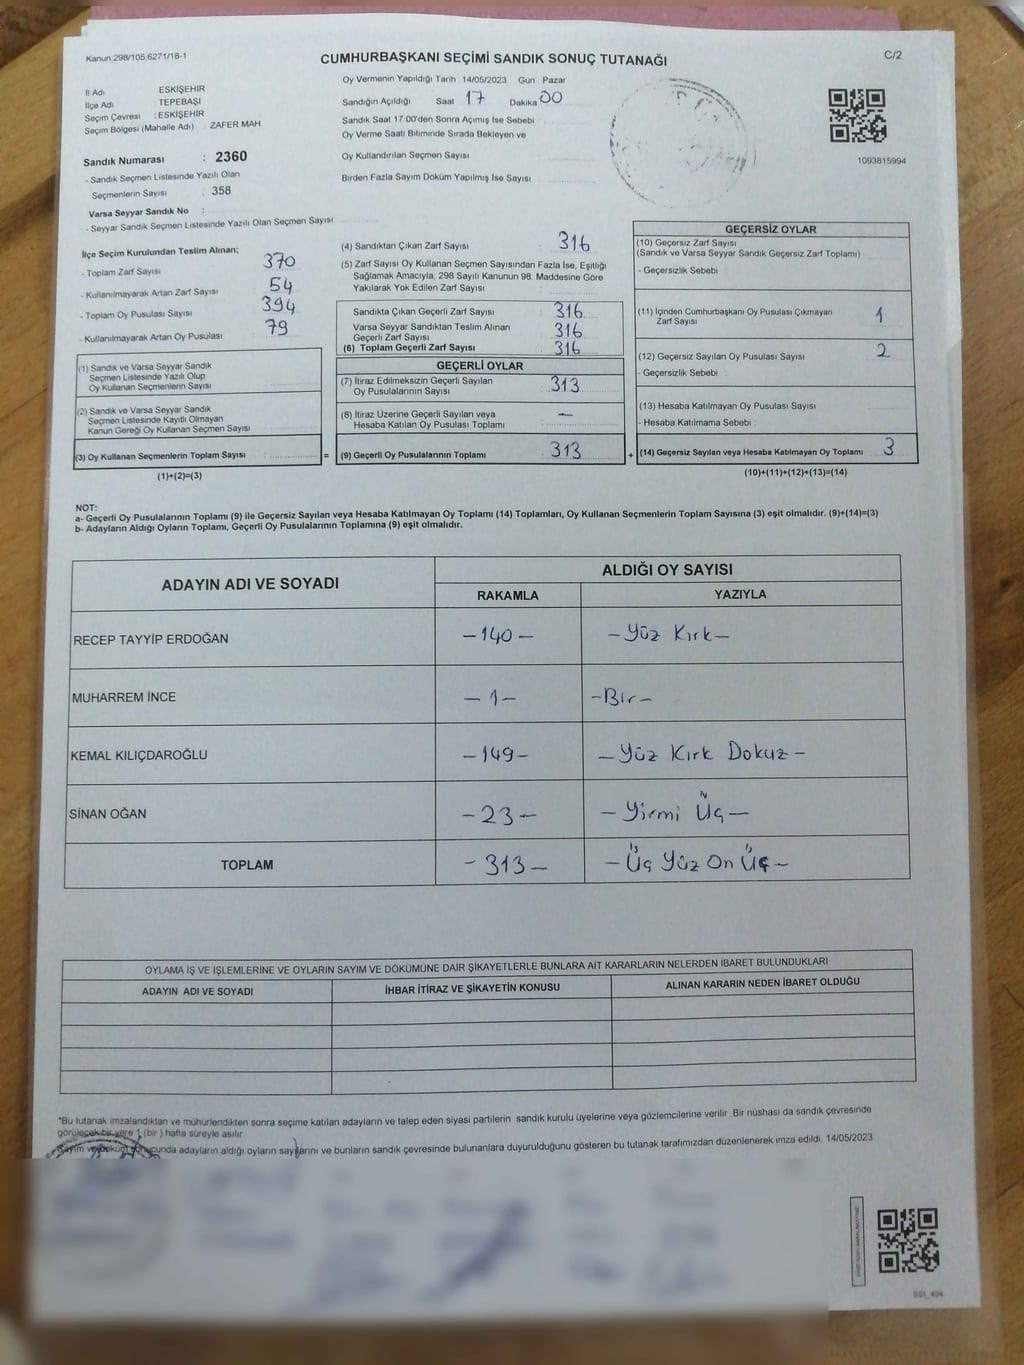 Kanun:298/105,6271/18-1
CUMHURBAŞKANI SEÇİMİ SANDIK SONUÇ TUTANAĞI
C/2
İl Adı ESKİŞEHİR
İlçe Adı TEPEBAŞI
Seçim Çevresi : ESKİŞEHİR
Seçim Bölgesi (Mahalle Adı) ZAFER MAH
Sandık Numarası : 2360
- Sandık Seçmen Listesinde Yazılı Olan
Seçmenlerin Sayısı : 358
Varsa Seyyar Sandık No :
- Seyyar Sandık Seçmen Listesinde Yazılı Olan Seçmen Sayısı:
Oy Vermenin Yapıldığı Tarih : 14/05/2023 Gün Pazar
Sandığın Açıldığı Saat 17 Dakika 00
Sandık Saat 17.00'den Sonra Açımış İse Sebebi
Oy Verme Saati Bitiminde Sırada Bekleyen ve
Oy Kullandırılan Seçmen Sayısı
Birden Fazla Sayım Döküm Yapılmış İse Sayısı
1093815994
İlçe Seçim Kurulundan Teslim Alınan;
- Toplam Zarf Sayısı 370
- Kullanılmayarak Artan Zarf Sayısı 54
- Toplam Oy Pusulası Sayısı 394
- Kullanılmayarak Artan Oy Pusulası 79
(1) Sandık ve Varsa Seyyar Sandık
Seçmen Listesinde Yazılı Olup
Oy Kullanan Seçmenlerin Sayısı
(2) Sandık ve Varsa Seyyar Sandık
Seçmen Listesinde Kayıtlı Olmayan
Kanun Gereği Oy Kullanan Seçmen Sayısı
(3) Oy Kullanan Seçmenlerin Toplam Sayısı =
(1)+(2)=(3)
(4) Sandıktan Çıkan Zarf Sayısı 316
(5) Zarf Sayısı Oy Kullanan Seçmen Sayısından Fazla İse, Eşitliği
Sağlamak Amacıyla, 298 Sayılı Kanunun 98. Maddesine Göre
Yakılarak Yok Edilen Zarf Sayısı
Sandıkta Çıkan Geçerli Zarf Sayısı 316
Varsa Seyyar Sandıktan Teslim Alınan
Geçerli Zarf Sayısı 316
(6) Toplam Geçerli Zarf Sayısı 316
GEÇERLİ OYLAR
(7) İtiraz Edilmeksizin Geçerli Sayılan
Oy Pusulalarının Sayısı 313
(8) İtiraz Üzerine Geçerli Sayılan veya
Hesaba Katılan Oy Pusulası Toplamı —
(9) Geçerli Oy Pusulalarının Toplamı 313 +
GEÇERSİZ OYLAR
(10) Geçersiz Zarf Sayısı
(Sandık ve Varsa Seyyar Sandık Geçersiz Zarf Toplamı)
- Geçersizlik Sebebi
(11) İçinden Cumhurbaşkanı Oy Pusulası Çıkmayan
Zarf Sayısı 1
(12) Geçersiz Sayılan Oy Pusulası Sayısı 2
- Geçersizlik Sebebi :
(13) Hesaba Katılmayan Oy Pusulası Sayısı
- Hesaba Katılmama Sebebi :
(14) Geçersiz Sayılan veya Hesaba Katılmayan Oy Toplamı 3
(10)+(11)+(12)+(13)=(14)
NOT:
a- Geçerli Oy Pusulalarının Toplamı (9) ile Geçersiz Sayılan veya Hesaba Katılmayan Oy Toplamı (14) Toplamları, Oy Kullanan Seçmenlerin Toplam Sayısına (3) eşit olmalıdır. (9)+(14)=(3)
b- Adayların Aldığı Oyların Toplamı, Geçerli Oy Pusulalarının Toplamına (9) eşit olmalıdır.
ADAYIN ADI VE SOYADI
ALDIĞI OY SAYISI
RAKAMLA YAZIYLA
RECEP TAYYİP ERDOĞAN -140- -Yüz Kırk-
MUHARREM İNCE -1- -Bir-
KEMAL KILIÇDAROĞLU -149- -Yüz Kırk Dokuz-
SİNAN OĞAN -23- -Yirmi Üç-
TOPLAM -313- -Üç Yüz On Üç-
OYLAMA İŞ VE İŞLEMLERİNE VE OYLARIN SAYIM VE DÖKÜMÜNE DAİR ŞİKAYETLERLE BUNLARA AİT KARARLARIN NELERDEN İBARET BULUNDUKLARI
ADAYIN ADI VE SOYADI İHBAR İTİRAZ VE ŞİKAYETİN KONUSU ALINAN KARARIN NEDEN İBARET OLDUĞU
*Bu tutanak imzalandıktan ve mühürlendikten sonra seçime katılan adayların ve talep eden siyasi partilerin sandık kurulu üyelerine veya gözlemcilerine verilir. Bir nüshası da sandık çevresinde
görülecek bir yere 1 (bir) hafta süreyle asılır.
Sayım ve döküm sonucunda adayların aldığı oyların sayılarını ve bunların sandık çevresinde bulunanlara duyurulduğunu gösteren bu tutanak tarafımızdan düzenlenerek imza edildi. 14/05/2023